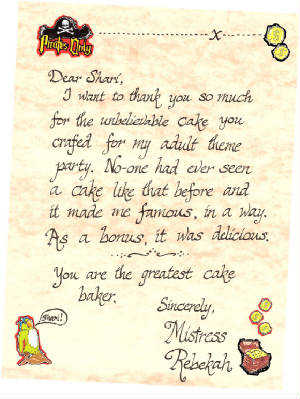 Pirates Only
X
Dear Shari,
I want to thank you so much
for the unbelievable cake you
crafed for my adult theme
party. No-one had ever seen
a cake like that before and
it made me famous, in a way.
As a bonus, it was delicious.
You are the greatest cake
baker.
Sincerely,
Mistress
Rebekah